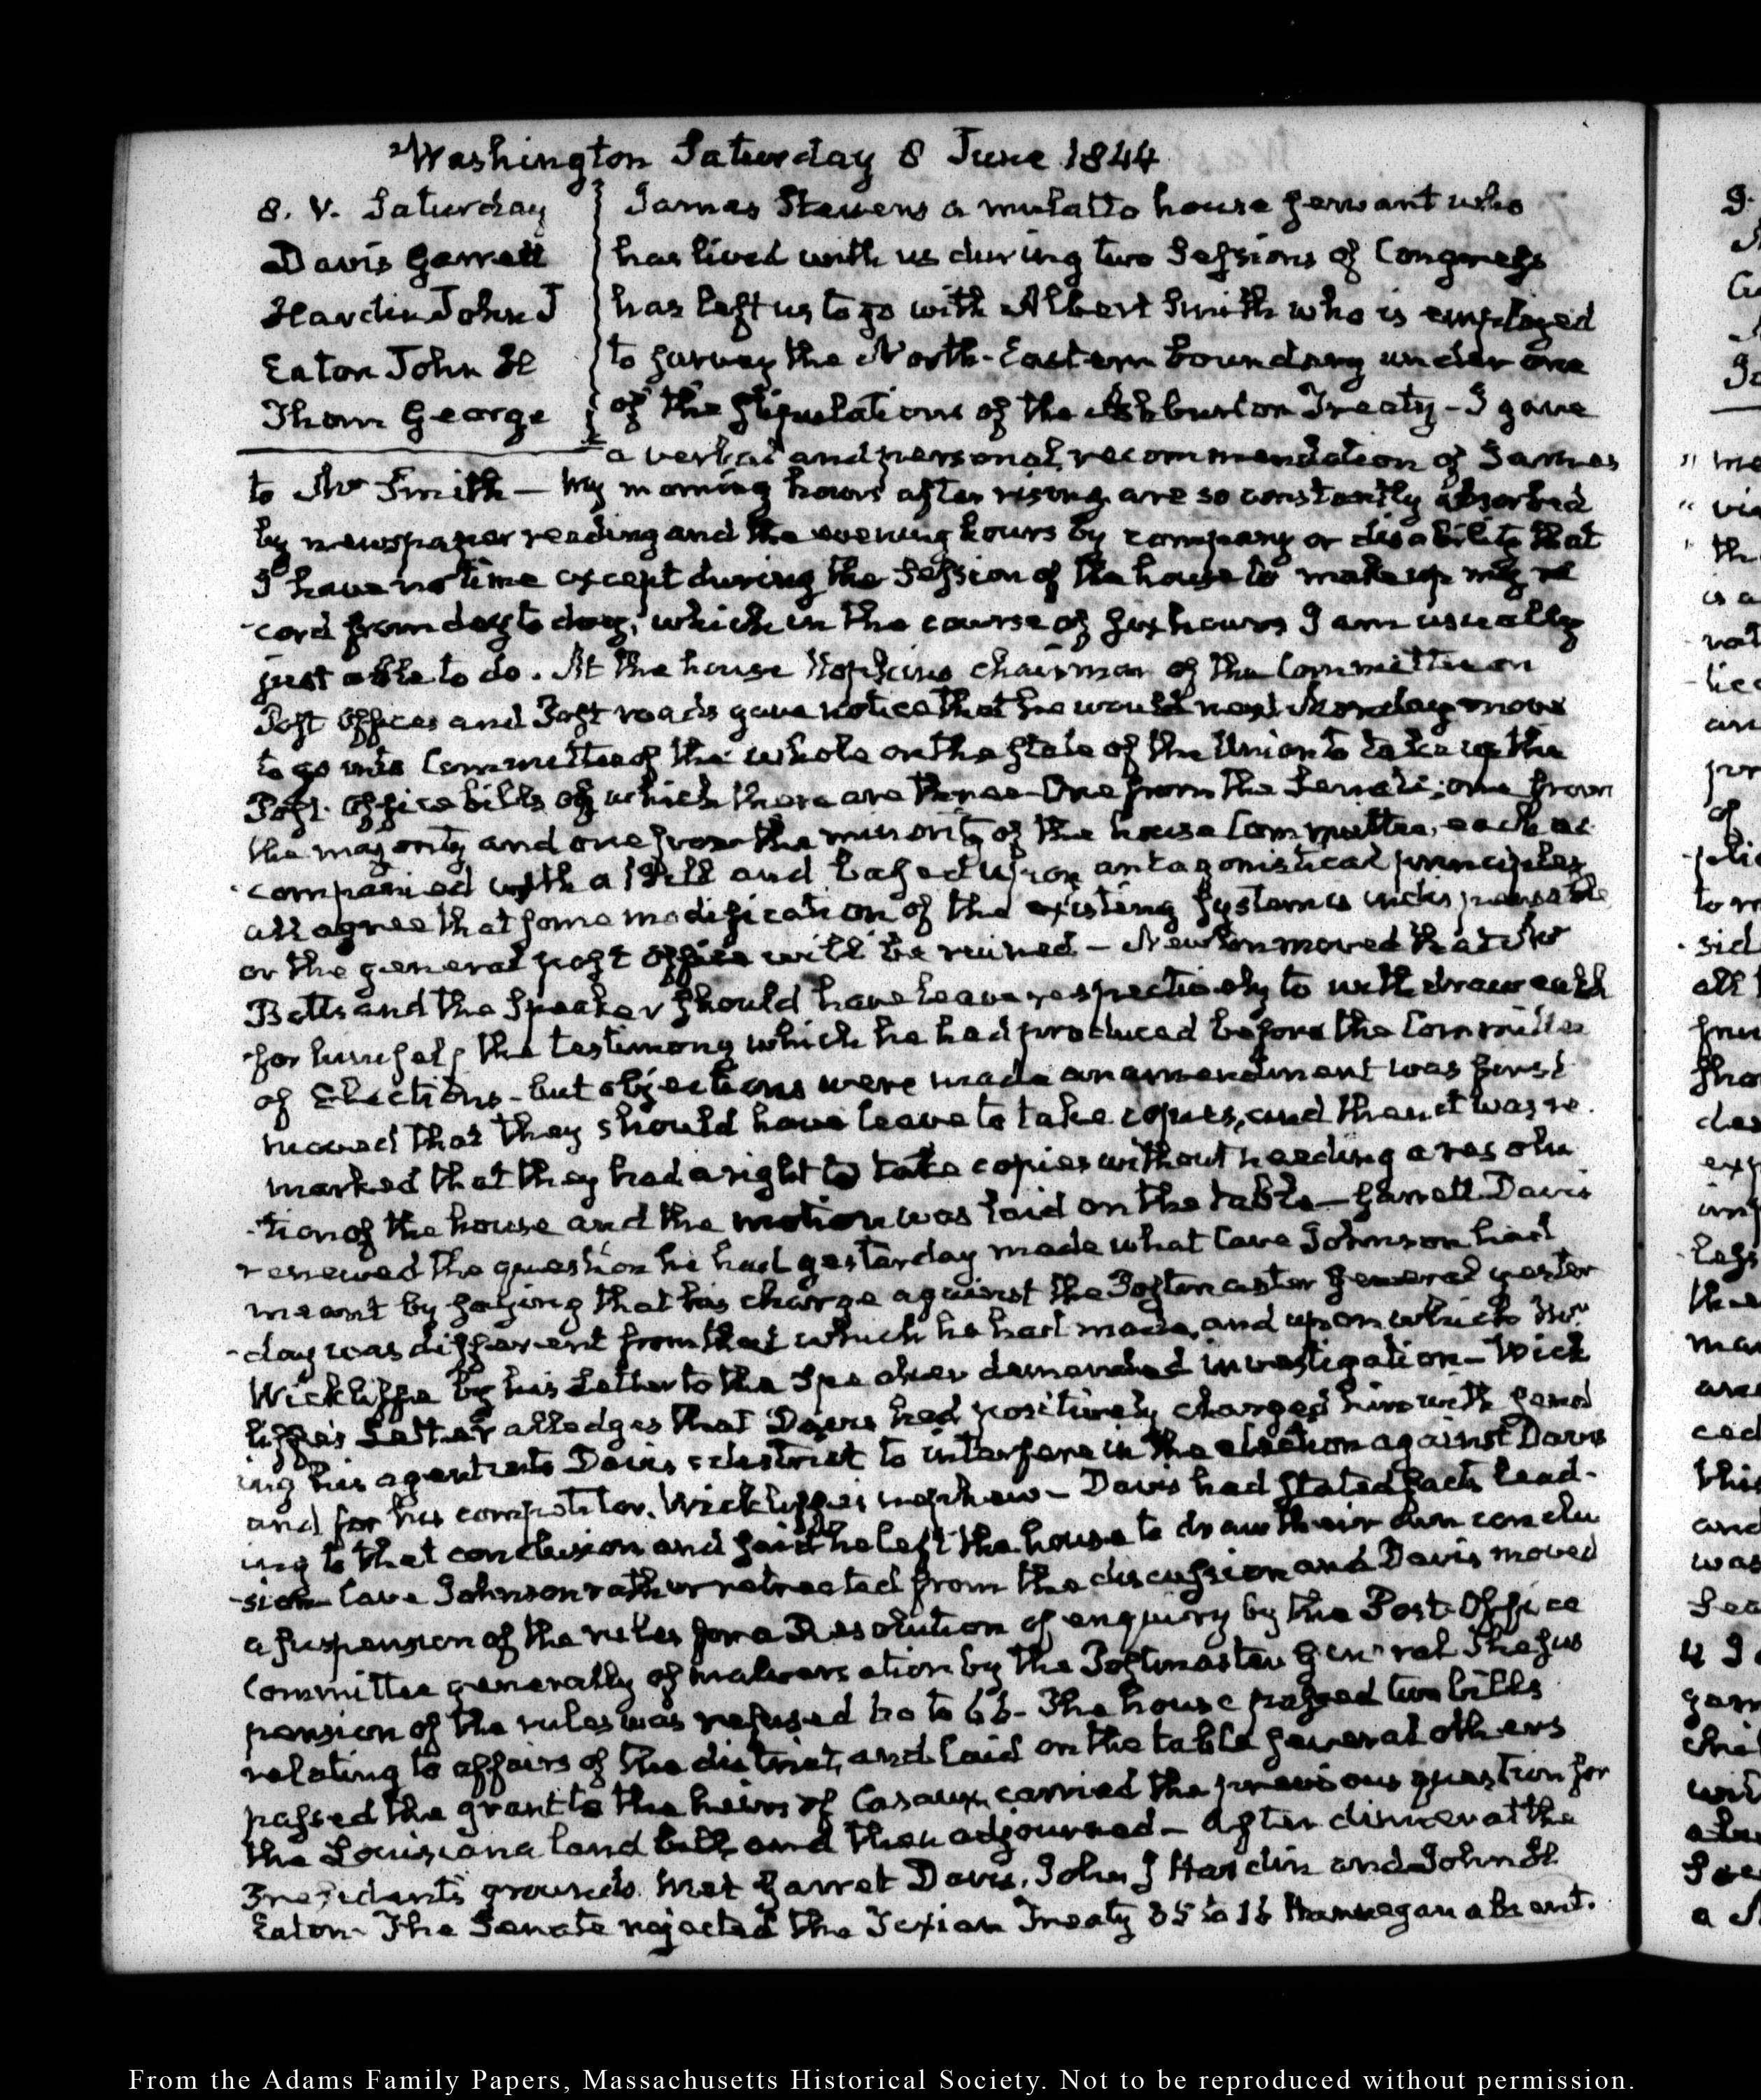 Washington Saturday 8 June 1844
8. V. Saturday
Davis Garrett
Hardin John J
Eaton John H
Thom George
James Stevens a mulatto house servant who
has lived with us during two Sessions of Congress
has left us to go with Albert Smith who is employed
to survey the North-Eastern boundary under one
of the stipulations of the Ashburton Treaty - I gave
a verbal and personal recommendation of James
to Mr Smith — My morning hours after rising are so constantly absorbed
by newspaper reading and the evening hours by company or disability that
I have no time except during the Session of the house to make up my re
-cord from day to day; which in the course of six hours I am usually
just able to do. At the house Hopkins chairman of the Committee on
Post offices and Post roads gave notice that he would next Monday move
to go into Committee of the whole on the state of the Union to take up the
Post Office bills of which there are three One from the Senate; one from
the majority and one from the minority of the house Committee, each ac
-companied with a Bill and based upon antagonistical principles
all agree that some modification of the existing system is indispensable
or the general post office will be ruined - Newton moved that Mr
Botts and the Speaker should have leave respectively to withdraw each
for himself, the testimony which he had produced before the Committee
of Elections - but objections were made an amendment was first
moved that they should have leave to take copies, and then it was re
marked that they had a right to take copies without needing a resolu
-tion of the house and the motion was laid on the table — Garrett Davis
renewed the question he had yesterday made what Cave Johnson had
meant by saying that his charge against the Postmaster General yester
-day was different from that which he had made, and upon which Mr
Wickliffe by his Letter to the Speaker demanded investigation - Wick
liffe's Letter alledges that Davis had positively charged him with send
ing his agent into Davis's district to interfere in the election against Davis
and for his competitor, Wickliffe's nephew - Davis had stated facts lead-
ing to that conclusion and said he left the house to draw their own conclu
-sion - Cave Johnson rather retracted from the discussion and Davis moved
a suspension of the rules for a Resolution of enquiry by the Post-Office
Committee generally of malversation by the Postmaster General The sus
pension of the rules was refused to 63 - The house passed two bills
relating to affairs of the district, and laid on the table several others
passed the grant to the heirs of Cazaux, carried the previous question for
the Louisiana land bill, and then adjourned - After dinner at the
President's grounds. Met Garret Davis, John J Hardin and John H
Eaton - The Senate rejected the Texian Treaty 35 to 16 Hannegan absent.
From the Adams Family Papers, Massachusetts Historical Society. Not to be reproduced without permission.